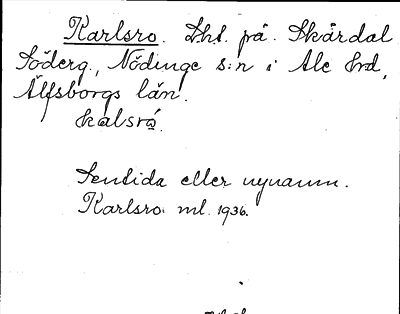 Karlsro. Lht. på Skårdal
Söderg., Nödinge s:n i Ale hd,
Älfsborgs län.
kalsrö
Sentida eller nynamn.
Karlsro ml. 1936.